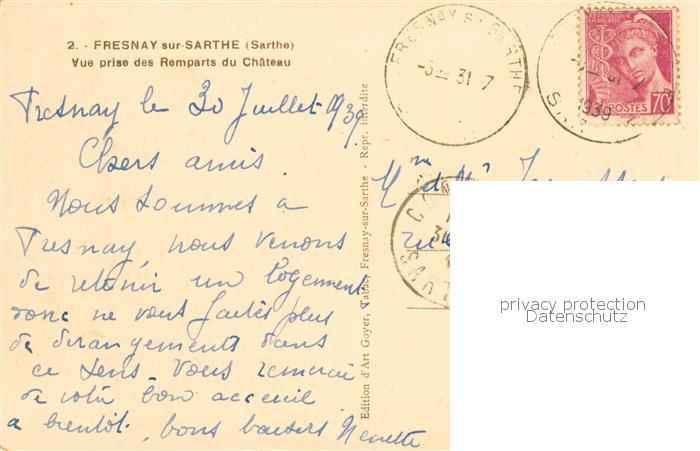 2. - FRESNAY sur-SARTHE (Sarthe)
Vue prise des Remparts du Château
Fresnay le 30 Juillet 1939
Chers amis.
Nous sommes a
Fresnay, nous venons
de retenir un logement
donc ne vous faites plus
de derangements dans
ce sens. Vous remerci
de votre bon acceuil
a bientôt, bons baisers Nenette
Edition d'Art Goyer, Fresnay-sur-Sarthe - Repr. interdite
FRESNAY S/ SARTHE
31 7
31
1939
REPUBLIQUE FRANÇAISE
POSTES 70c
Mme et Mr
rue
privacy protection
Datenschutz